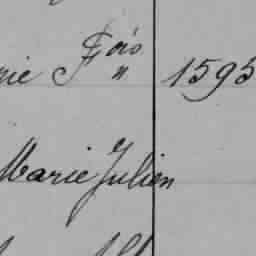 rie Fçois 1595
Marie Julien